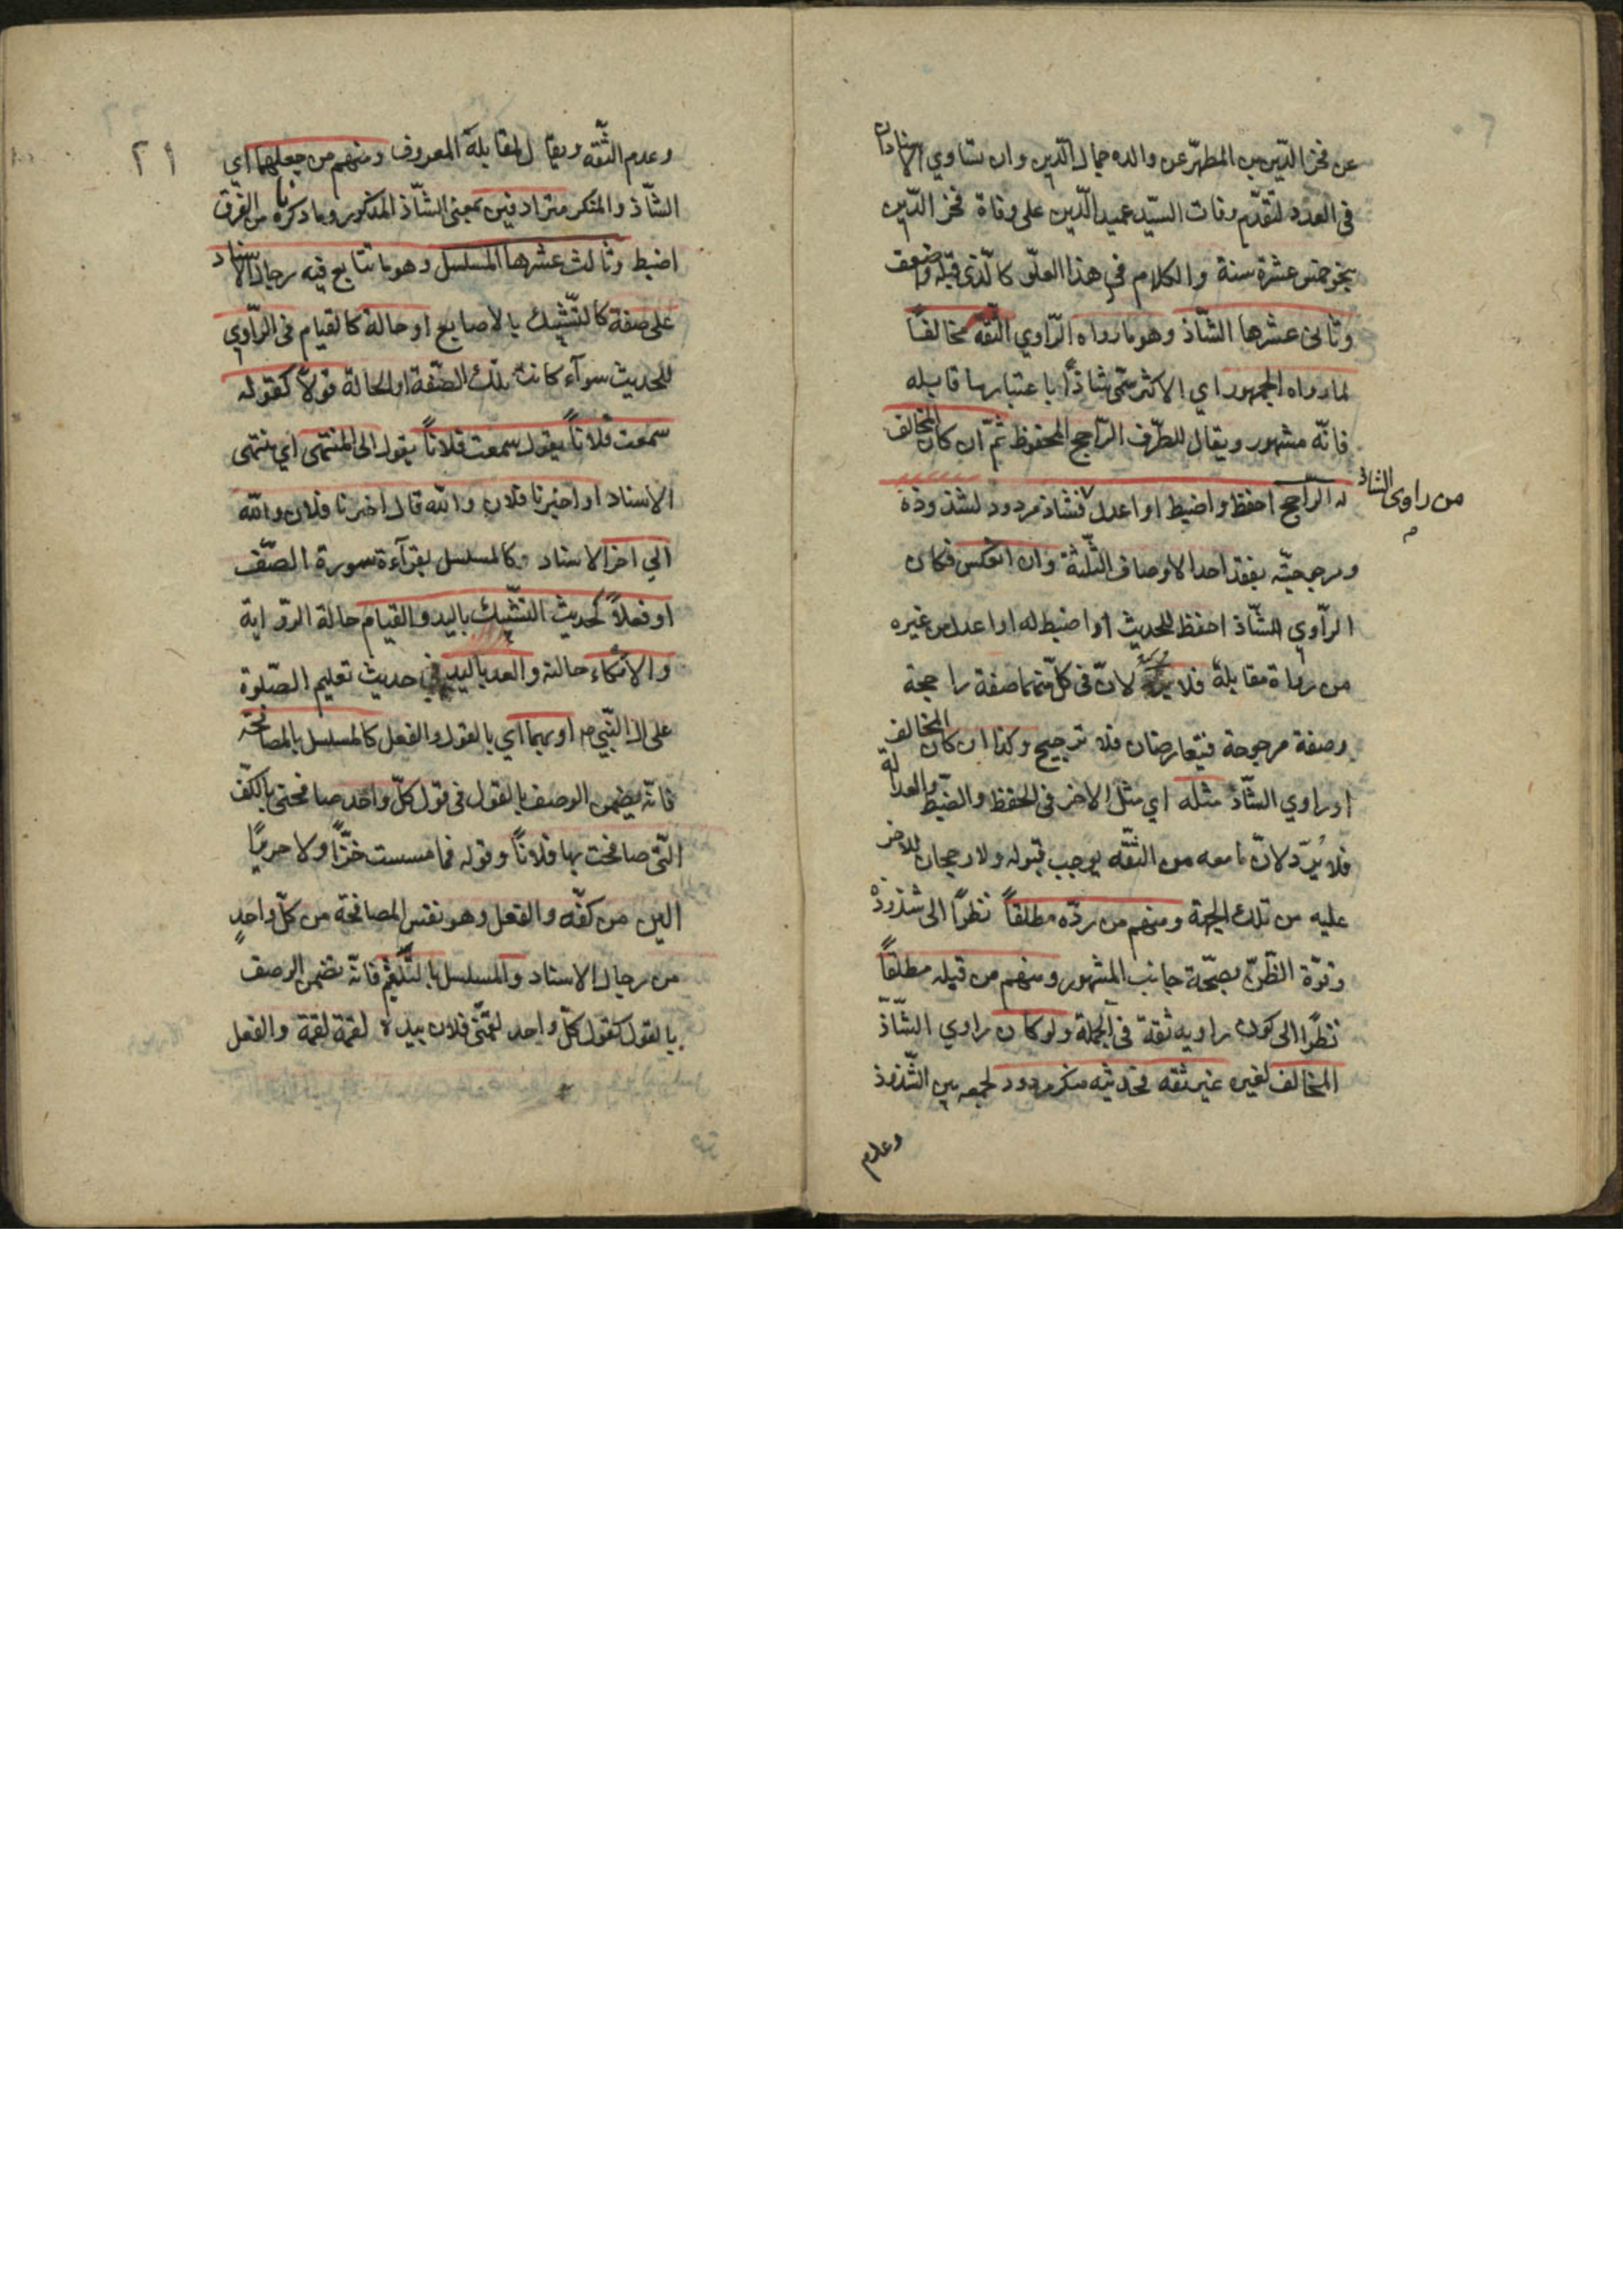 عن فخر الدّين بن المطهّر عن والده جمال الدّين وان تساوي الاسنادان
في العدد لتقدّم وفات السيّد عميد الدّين على وفاة فخر الدّين
بنحو خمس عشرة سنة والكلام في هذا العلّو كالّذي قبله واضعف
وثاني عشرها الشّاذ وهو ما رواه الرّاوي الثّقة مخالفاً
لما رواه الجمهور اي الاكثر سمّى شاذّاً باعتبار ما قابله
فانّه مشهور ويقال للطّرف الرّاجح المحفوظ ثمّ ان كان المخالف
له الرّاجح احفظ واضبط او اعدل فشاذ مردود لشذوذه
من راوى الشاذ
ومرجوحيّته بفقد احد الاوصاف الثّلثة وان انعكس فكان
الرّاوي الشّاذ احفظ للحديث او اضبط له او اعدل من غيره
من رواة مقابلة فلا يردّ لانّ في كلّ منهما صفة راجحة
وصفة مرجوحة فيتعارضان فلا ترجيح وكذا ان كان المخالف
او راوي الشّاذ مثله اي مثل الاخر في الحفظ والضّبط والعدالة
فلا يُردّ لانّ ما معه من الثّقة يوجب قبوله ولا رجحان للاخر
عليه من تلك الجهة ومنهم من ردّه مطلقاً نظراً الى شذوذه
وقوّة الظّنّ بصحّة جانب المشهور ومنهم من قبله مطلقاً
نظراً الى كون راويه ثقة في الجملة ولو كان راوي الشّاذّ
المخالف لغيره غير ثقه فحديثه منكر مردود لجمعه بين الشّذوذ
وعدم
٢١
وعدم الثّقه ويقال لمقابله المعروف ومنهم من جعلهما اي
الشّاذ والمنكر مترادفين بمعنى الشّاذ المذكور وما ذكرناه من الفرق
اضبط وثالث عشرها المسلسل وهو ما تتابع فيه رجال الاسناد
على صفة كالتّشبيك بالاصابع او حالة كالقيام في الرّاوي
للحديث سوآء كانت تلك الصّفة او الحالة قولاً كقوله
سمعت فلاناً يقول سمعت فلاناً يقول الى المنتهى اي منتهى
الاسناد او اخبرنا فلان والله قال اخبرنا فلان والله
الي اخر الاسناد وكالمسلسل بقرآءة سورة الصّف
او فعلاً كحديث التشّبيك باليد والقيام حالة الرّواية
والاتّكاء حالته والعد باليد في حديث تعليم الصّلوة
على ال النّبي ص او بهما اي بالقول والفعل كالمسلسل بالمصافحة
فانّه يتضمن الوصف بالقول في قول كلّ واحد صافحني بالكفّ
الّتي صافحت بها فلاناً وقوله فما مسست خزّاً ولا حريراً
الين من كفّه والفعل وهو نفس المصافحة من كلّ واحدٍ
من رجال الاسناد والمسلسل بالتّلقيم فانّه يتضمن الوصف
بالقول كقول كلّ واحد لقمّني فلان بيده لقمة لقمة والفعل